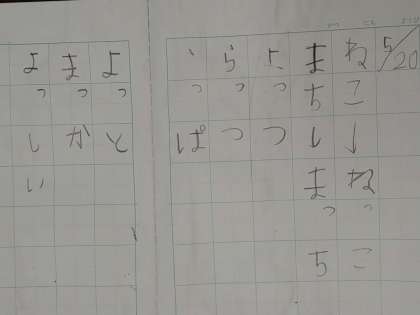 5/20
ねこ↓ねっこ
まち↓まっち
たっつ
らっつ
いっぱ
よっと
まっか
よっしい